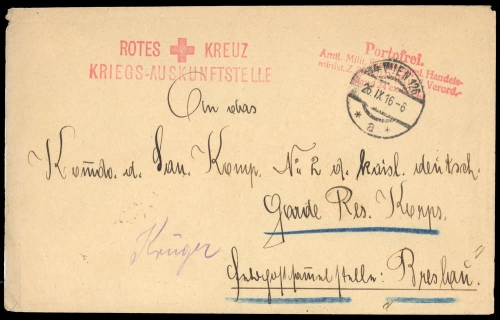 ROTES KREUZ
KRIEGS-AUSKUNFTSTELLE
Portofrei.
Amtl. Milit. Handels-
minist. Z. Verord.
WIEN 126
26.IX.16-6
* a *
An das
Komdo. d. San. Komp. No 2 d. kaisl. deutsch.
Garde Res. Korps.
Krüger
Feldpostsammelstelle: Breslau.